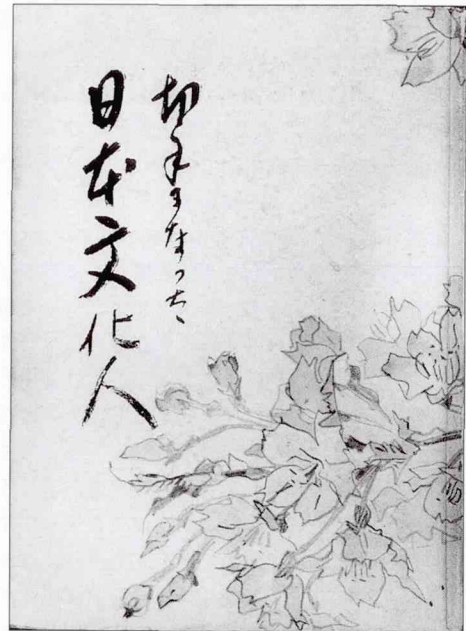 切手になった
日本文化人